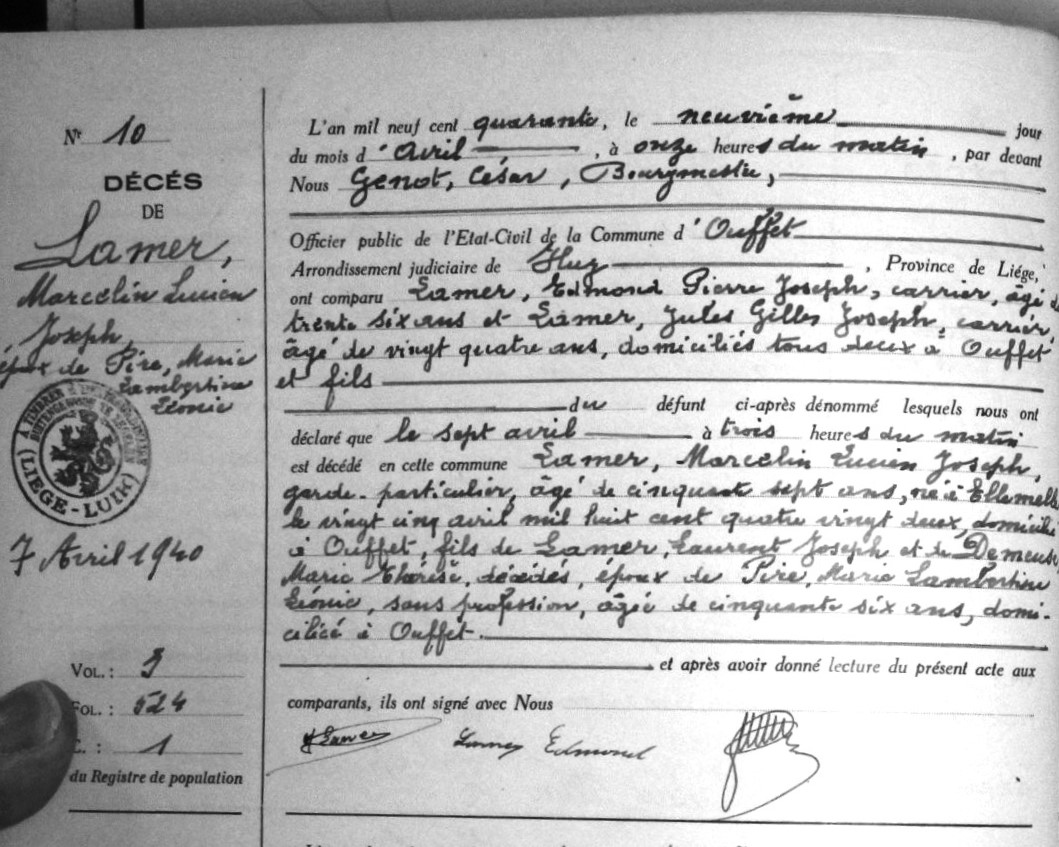 Nr 10
DÉCÉS
DE
Lamer,
Marcelin Lucien
Joseph,
époux de Pire, Marie
Lambertine
Léonie
(LIEGE-LUIK)
7 Avril 1940
VOL. : 5
FOL. : 524
C. : 1
du Registre de population
L'an mil neuf cent quarante, le neuvième jour
du mois d'Avril, à onze heures du matin, par devant
Nous Genot, César, Bourgmestre,
Officier public de l'Etat-Civil de la Commune d'Ouffet
Arrondissement judiciaire de Huy, Province de Liége,
ont comparu Lamer, Edmond Pierre Joseph, carrier, âgé de
trente six ans et Lamer, Jules Gilles Joseph, carrier
âgé de vingt quatre ans, domiciliés tous deux à Ouffet
et fils
du défunt ci-après dénommé lesquels nous ont
déclaré que le sept avril à trois heures du matin
est décédé en cette commune Lamer, Marcelin Lucien Joseph,
garde-particulier, âgé de cinquante sept ans, né à Ellemelle
le vingt cinq avril mil huit cent quatre vingt deux, domicilié
à Ouffet, fils de Lamer, Laurent Joseph et de Demeuse,
Marie Thérèse, décédés, époux de Pire, Marie Lambertine
Léonie, sans profession, âgée de cinquante six ans, domi-
ciliée à Ouffet.
et après avoir donné lecture du présent acte aux
comparants, ils ont signé avec Nous
J Lamer Lamer Edmond